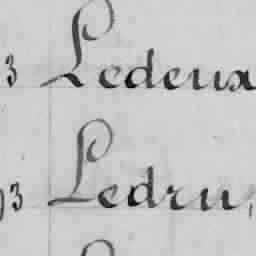 3 Ledeux
93 Ledru,